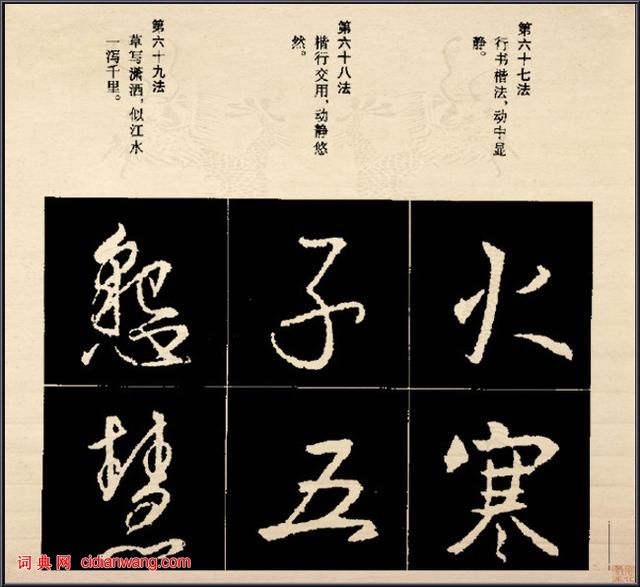 第六十七法
行书楷法，动中显
静。
第六十八法
楷行交用，动静悠
然。
第六十九法
草写潇洒，似江水
一泻千里。
火
寒
子
五
慧
词典网 cidianwang.com